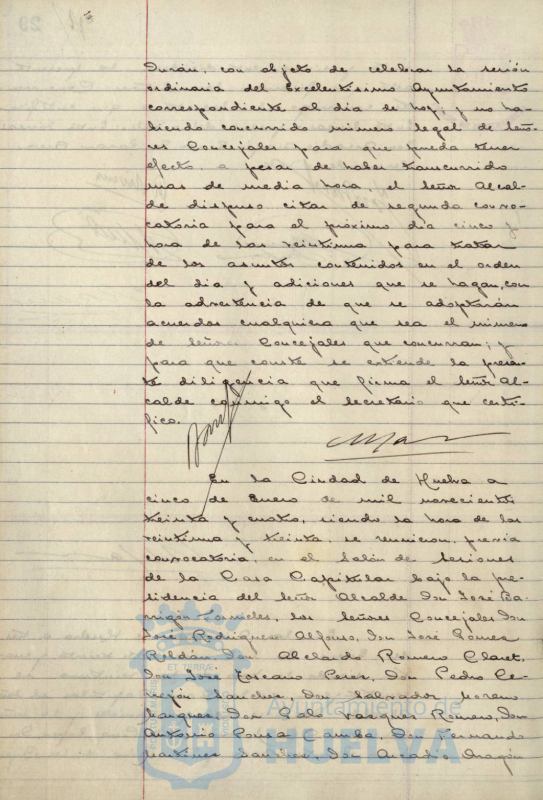 Durán, con objeto de celebrar la sesión
ordinaria del Excelentísimo Ayuntamiento
correspondiente al día de hoy, y no ha-
biendo concurrido número legal de Seño-
res Concejales para que pueda tener
efecto, a pesar de haber transcurrido
mas de media hora, el Señor Alcal-
de dispuso citar de segunda convo-
catoria para el próximo día cinco y
hora de las veintiuna para tratar
de los asuntos contenidos en el orden
del día y adiciones que se hagan, con
la advertencia de que se adoptarán
acuerdos cualquiera que sea el número
de Señores Concejales que concurran; y
para que conste se extiende la presen-
te diligencia que firma el Señor Al-
calde conmigo el Secretario que certi-
fico.
En la Ciudad de Huelva a
cinco de Enero de mil novecientos
treinta y cuatro, siendo la hora de las
veintiuna y treinta, se reunieron, previa
convocatoria, en el Salón de Sesiones
de la Casa Capitular bajo la pre-
sidencia del Señor Alcalde Don José Ba-
rrigón Fornieles, los Señores Concejales Don
José Rodríguez Alfonso, Don José Gómez
Roldán, Don Abelardo Romero Claret,
Don José Toscano Perez, Don Pedro Ce-
rrejón Sanchez, Don Salvador Moreno
Marquez, Don Galo Vazquez Romero, Don
Antonio Ponce Camba, Don Fernando
Martinez Sanchez, Don Arcadio Aragón
Ayuntamiento de
HUELVA